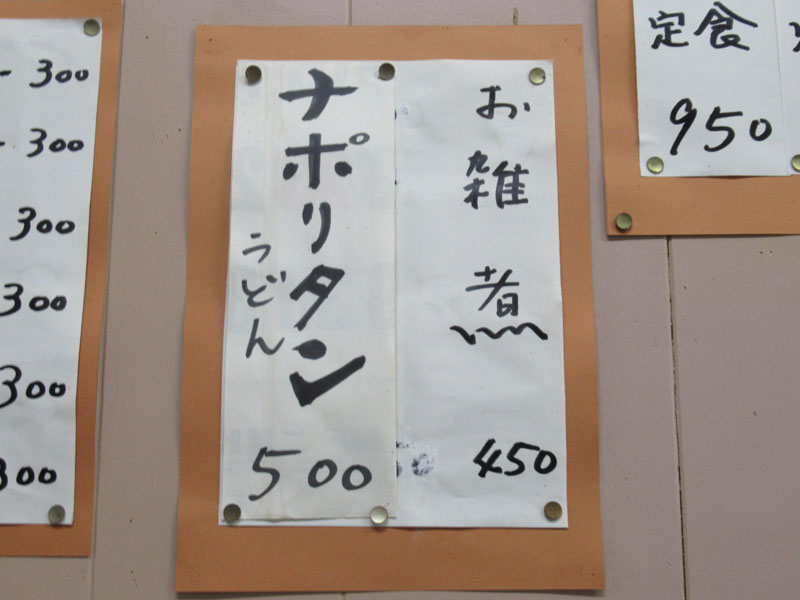 定食
950
お雑煮
450
ナポリタン
うどん
500
300
300
300
300
300
300